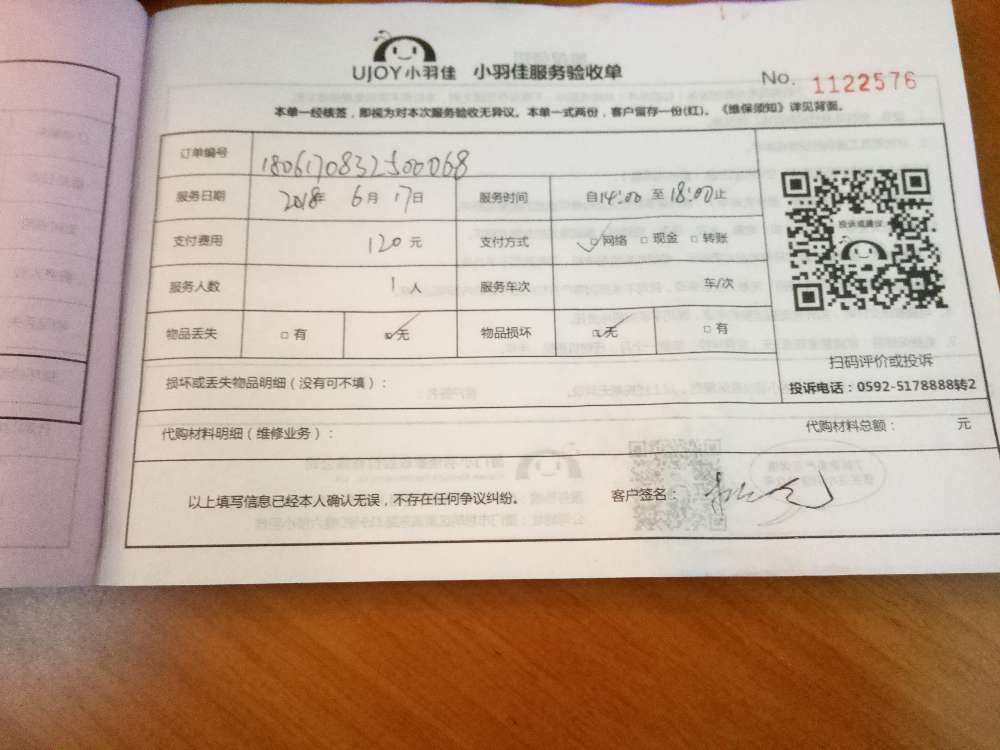 UJOY小羽佳 小羽佳服务验收单
No. 1122576
本单一经核签，即视为对本次服务验收无异议。本单一式两份，客户留存一份(红)。《维保须知》详见背面。
订单编号 1806170832500068
服务日期 2018年 6月 17日 服务时间 自14:00 至 18:00止
支付费用 120元 支付方式 ☑网络 □现金 □转账
服务人数 1人 服务车次 车/次
物品丢失 □有 ☑无 物品损坏 ☑无 □有
投诉或建议
扫码评价或投诉
投诉电话：0592-5178888转2
损坏或丢失物品明细（没有可不填）：
代购材料明细（维修业务）： 代购材料总额： 元
以上填写信息已经本人确认无误，不存在任何争议纠纷。 客户签名：